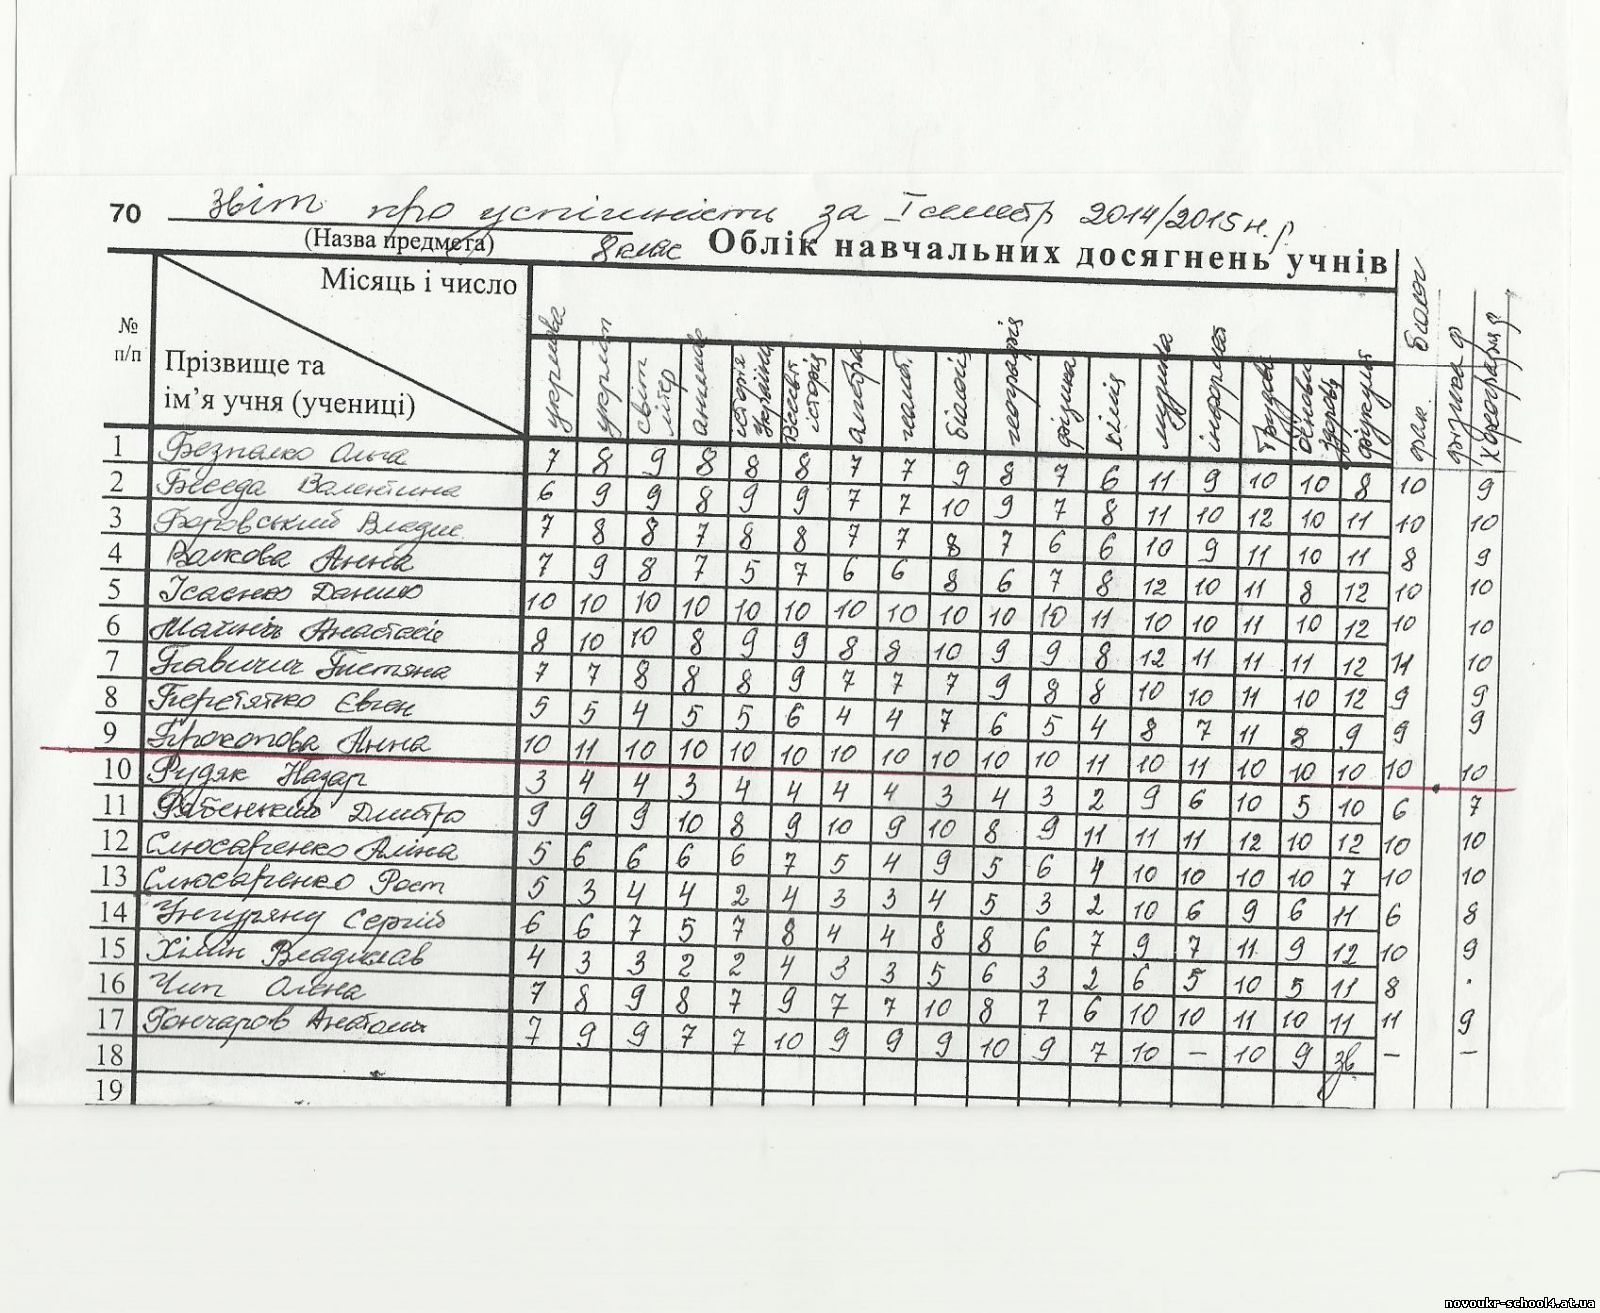 70 Звіт про успішність за І семестр 2014/2015 н.р.
(Назва предмета) 8 клас Облік навчальних досягнень учнів
Місяць і число
№ п/п
Прізвище та
ім’я учня (учениці)
укр.мова укр.літ світ літер англ.мов історія України Всесвіт історія алгебра геом. біологія географія фізика хімія музика інформат Трудове основи здоров фізкульт біолог фак. фізика ф Хореографія
1 Безпалко Ольга 7 8 9 8 8 8 7 7 9 8 7 6 11 9 10 10 8 10 9
2 Беседа Валентина 6 9 9 8 9 9 7 7 10 9 7 8 11 10 12 10 11 10 10
3 Боровський Владис 7 8 8 7 8 8 7 7 8 7 6 6 10 9 11 10 11 8 9
4 Волкова Анна 7 9 8 7 5 7 6 6 8 6 7 8 12 10 11 8 12 10 10
5 Ісаєнко Данило 10 10 10 10 10 10 10 10 10 10 10 11 10 10 11 10 12 10 10
6 Анастасія 8 10 10 8 9 9 8 8 10 9 9 8 12 11 11 11 12 11 10
7 7 7 8 8 8 9 7 7 7 9 8 8 10 10 11 10 12 9 9
8 Перетятко Євген 5 5 4 5 5 6 4 4 7 6 5 4 8 7 11 8 9 9 9
9 Прокопова Анна 10 11 10 10 10 10 10 10 10 10 10 11 10 11 10 10 10 10 10
10 Рудяк Назар 3 4 4 3 4 4 4 4 3 4 3 2 9 6 10 5 10 6 7
11 Дмитро 9 9 9 10 8 9 10 9 10 8 9 11 11 11 12 10 12 10 10
12 Слюсаренко Аліна 5 6 6 6 6 7 5 4 9 5 6 4 10 10 10 10 7 10 10
13 Слюсаренко Рост 5 3 4 4 2 4 3 3 4 5 3 2 10 6 9 6 11 6 8
14 Унгуряну Сергій 6 6 7 5 7 8 4 4 8 8 6 7 9 7 11 9 12 10 9
15 Хілін Владіслав 4 3 3 2 2 4 3 3 5 6 3 2 6 5 10 5 11 8 .
16 Чип Олена 7 8 9 8 7 9 7 7 10 8 7 6 10 10 11 10 11 11 9
17 Гончаров Анатолій 7 9 9 7 7 10 9 9 9 10 9 7 10 – 10 9 зв. – –
18
19
novoukr-school4.at.ua